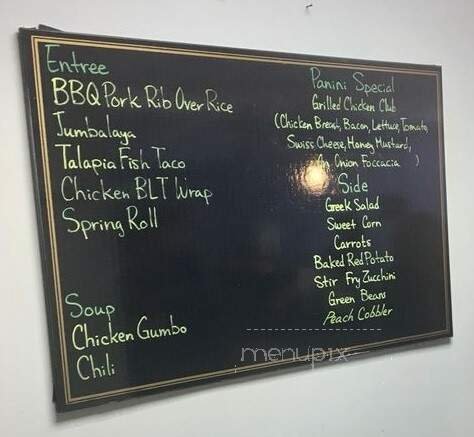 Entree
BBQ Pork Rib Over Rice
Jumbalaya
Talapia Fish Taco
Chicken BLT Wrap
Spring Roll
Soup
Chicken Gumbo
Chili
Panini Special
Grilled Chicken Club
(Chicken Breast, Bacon, Lettuce, Tomato,
Swiss Cheese, Honey Mustard,
On Onion Foccacia )
Side
Greek Salad
Sweet Corn
Carrots
Baked Red Potato
Stir Fry Zucchini
Green Beans
Peach Cobbler
menupix